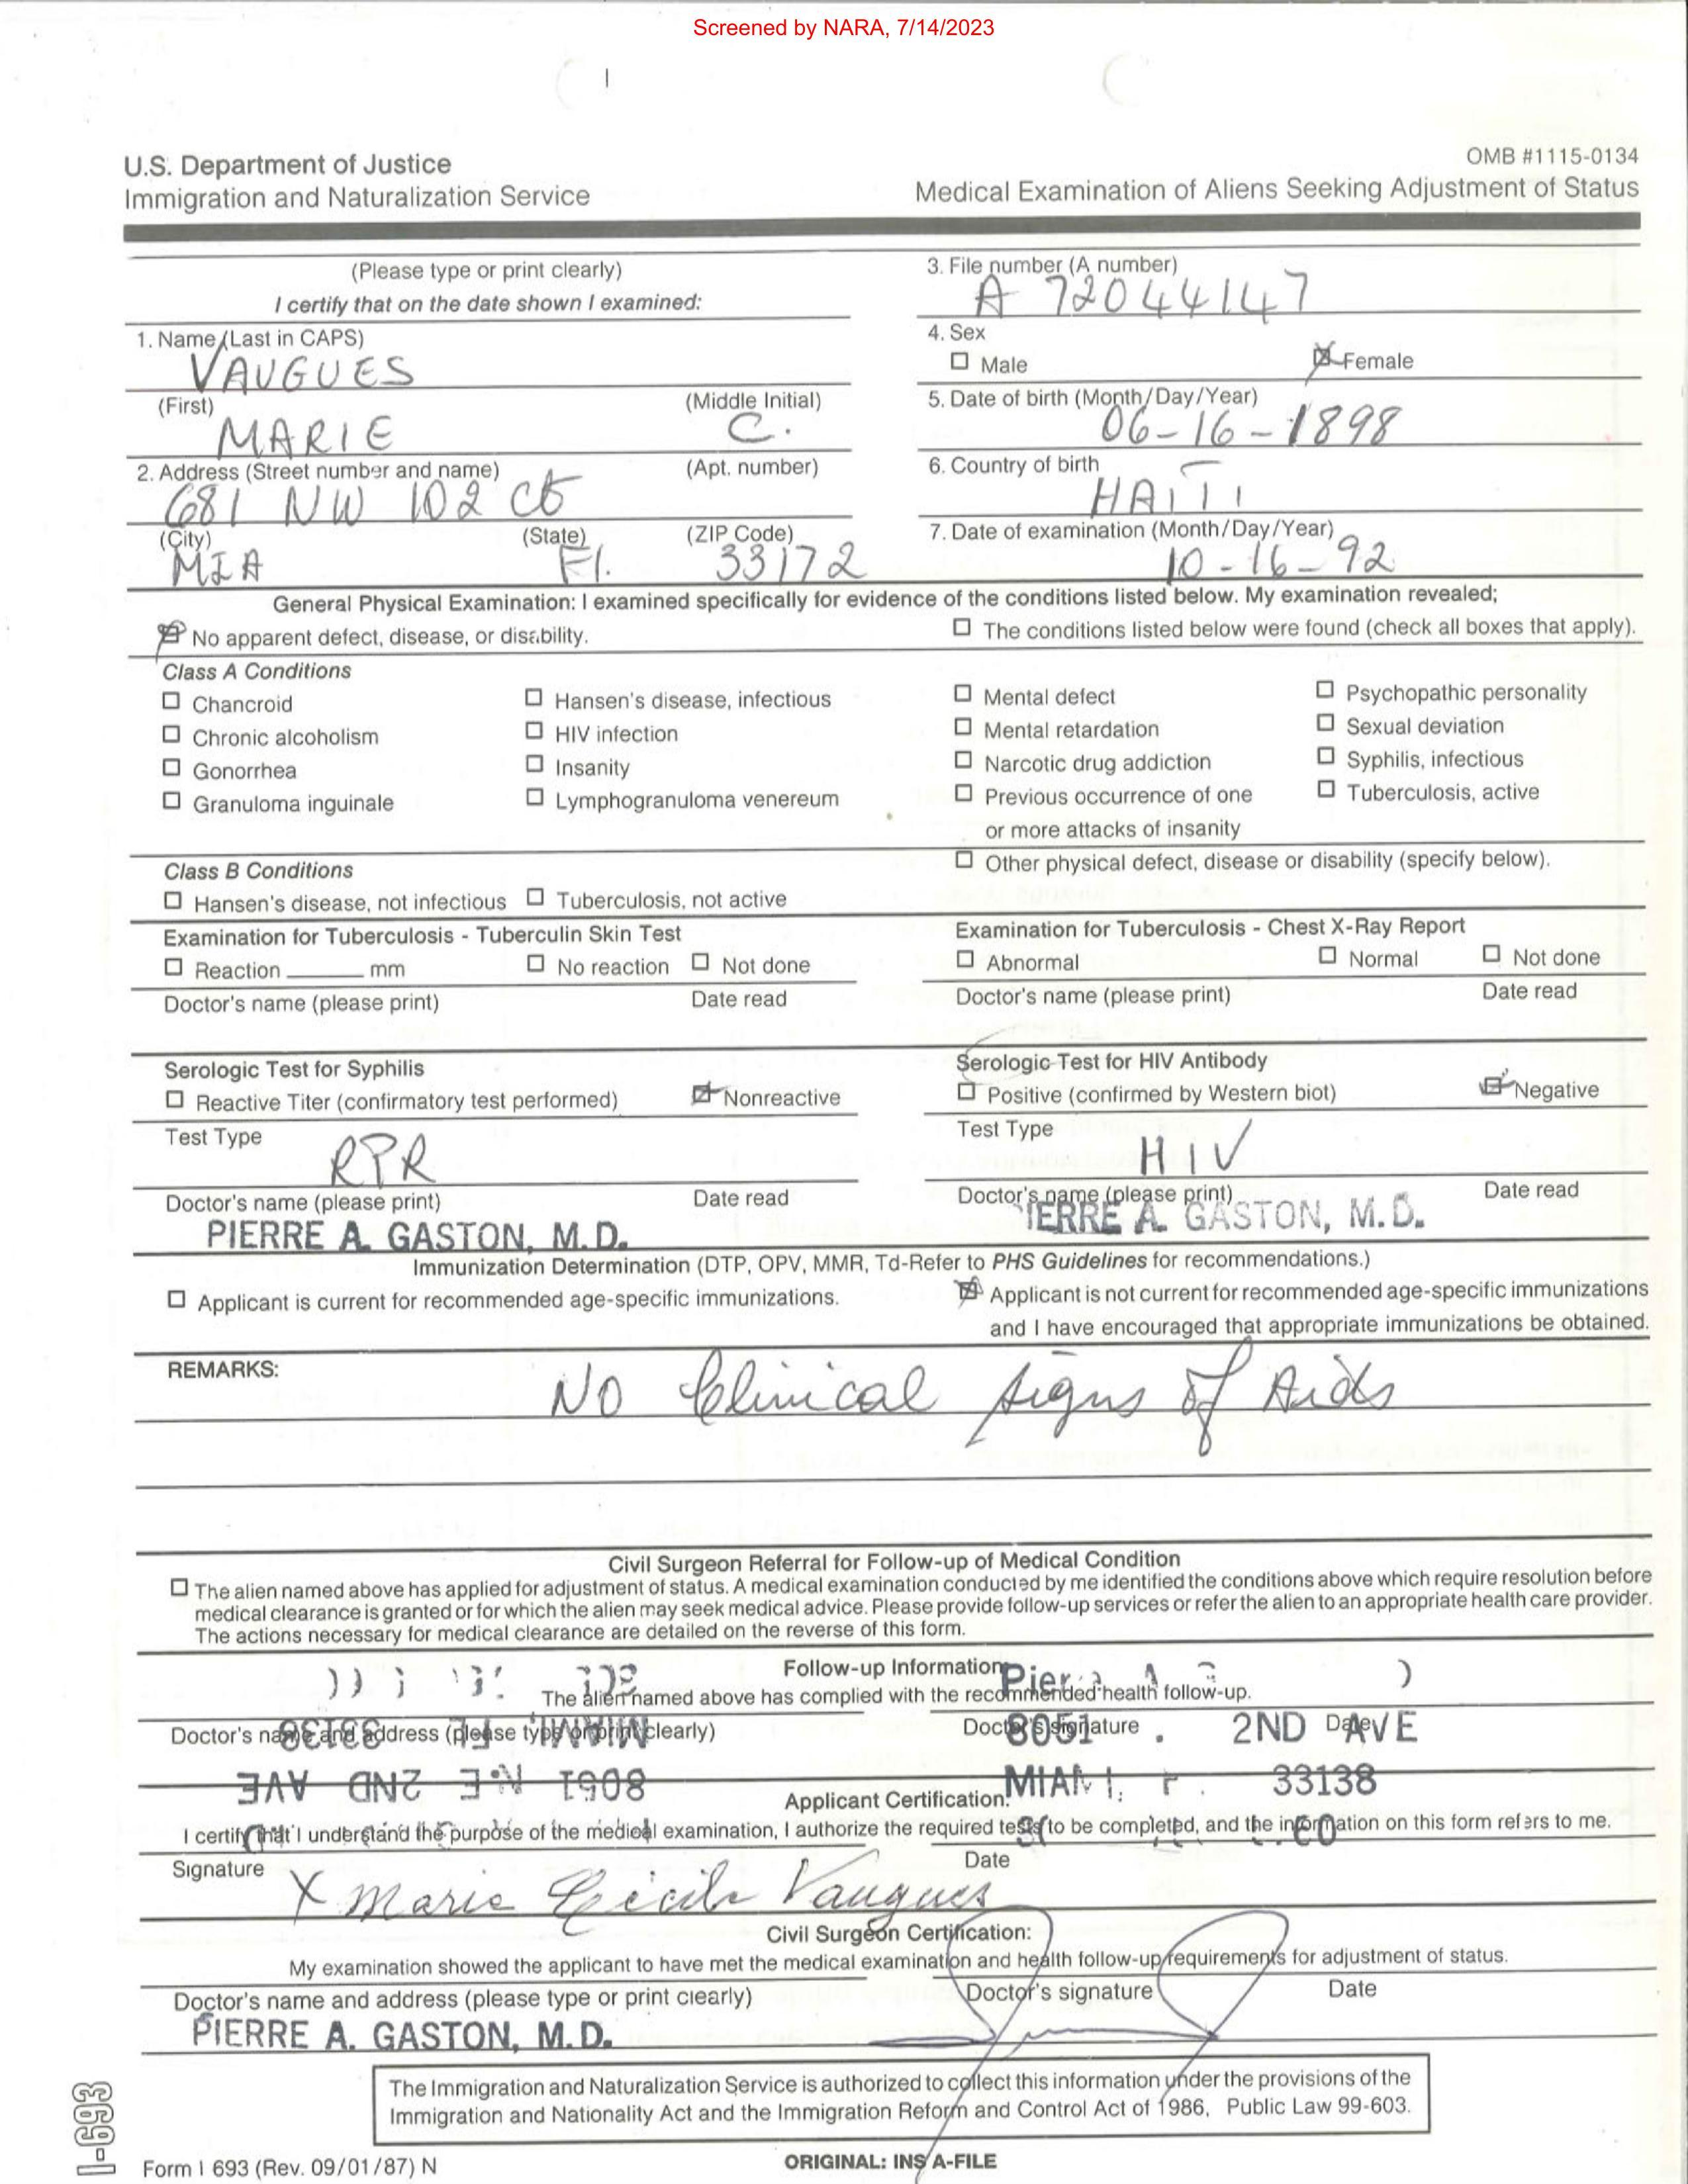 Screened by NARA, 7/14/2023
U.S. Department of Justice
Immigration and Naturalization Service
OMB #1115-0134
Medical Examination of Aliens Seeking Adjustment of Status
(Please type or print clearly)
I certify that on the date shown I examined:
3. File number (A number)
A 72044147
1. Name (Last in CAPS)
VAUGUES
4. Sex
☐ Male ☒ Female
(First) (Middle Initial)
MARIE C.
5. Date of birth (Month/Day/Year)
06-16-1898
2. Address (Street number and name) (Apt. number)
681 NW 102 Ct
6. Country of birth
HAITI
(City) (State) (ZIP Code)
MIA Fl. 33172
7. Date of examination (Month/Day/Year)
10-16-92
General Physical Examination: I examined specifically for evidence of the conditions listed below. My examination revealed;
☒ No apparent defect, disease, or disability. ☐ The conditions listed below were found (check all boxes that apply).
Class A Conditions
☐ Chancroid ☐ Hansen's disease, infectious ☐ Mental defect ☐ Psychopathic personality
☐ Chronic alcoholism ☐ HIV infection ☐ Mental retardation ☐ Sexual deviation
☐ Gonorrhea ☐ Insanity ☐ Narcotic drug addiction ☐ Syphilis, infectious
☐ Granuloma inguinale ☐ Lymphogranuloma venereum ☐ Previous occurrence of one ☐ Tuberculosis, active
or more attacks of insanity
Class B Conditions ☐ Other physical defect, disease or disability (specify below).
☐ Hansen's disease, not infectious ☐ Tuberculosis, not active
Examination for Tuberculosis - Tuberculin Skin Test
☐ Reaction ______ mm ☐ No reaction ☐ Not done
Doctor's name (please print) Date read
Examination for Tuberculosis - Chest X-Ray Report
☐ Abnormal ☐ Normal ☐ Not done
Doctor's name (please print) Date read
Serologic Test for Syphilis
☐ Reactive Titer (confirmatory test performed) ☒ Nonreactive
Test Type
RPR
Doctor's name (please print) Date read
PIERRE A. GASTON, M.D.
Serologic Test for HIV Antibody
☐ Positive (confirmed by Western biot) ☒ Negative
Test Type
HIV
Doctor's name (please print) Date read
IERRE A. GASTON, M.D.
Immunization Determination (DTP, OPV, MMR, Td-Refer to PHS Guidelines for recommendations.)
☐ Applicant is current for recommended age-specific immunizations.
☒ Applicant is not current for recommended age-specific immunizations
and I have encouraged that appropriate immunizations be obtained.
REMARKS:
No Clinical signs of Aids
Civil Surgeon Referral for Follow-up of Medical Condition
☐ The alien named above has applied for adjustment of status. A medical examination conducted by me identified the conditions above which require resolution before
medical clearance is granted or for which the alien may seek medical advice. Please provide follow-up services or refer the alien to an appropriate health care provider.
The actions necessary for medical clearance are detailed on the reverse of this form.
Follow-up Information
The alien named above has complied with the recommended health follow-up.
Doctor's name and address (please type or print clearly) Doctor's signature Date
MIAMI, FL 33138
8051 N.E 2ND AVE
8051 2ND AVE
MIAMI, 33138
Applicant Certification:
I certify that I understand the purpose of the medical examination, I authorize the required tests to be completed, and the information on this form refers to me.
Signature Date
X Marie Cécile Vaugues
Civil Surgeon Certification:
My examination showed the applicant to have met the medical examination and health follow-up requirements for adjustment of status.
Doctor's name and address (please type or print clearly) Doctor's signature Date
PIERRE A. GASTON, M.D.
The Immigration and Naturalization Service is authorized to collect this information under the provisions of the
Immigration and Nationality Act and the Immigration Reform and Control Act of 1986, Public Law 99-603.
I-693
Form I 693 (Rev. 09/01/87) N
ORIGINAL: INS A-FILE